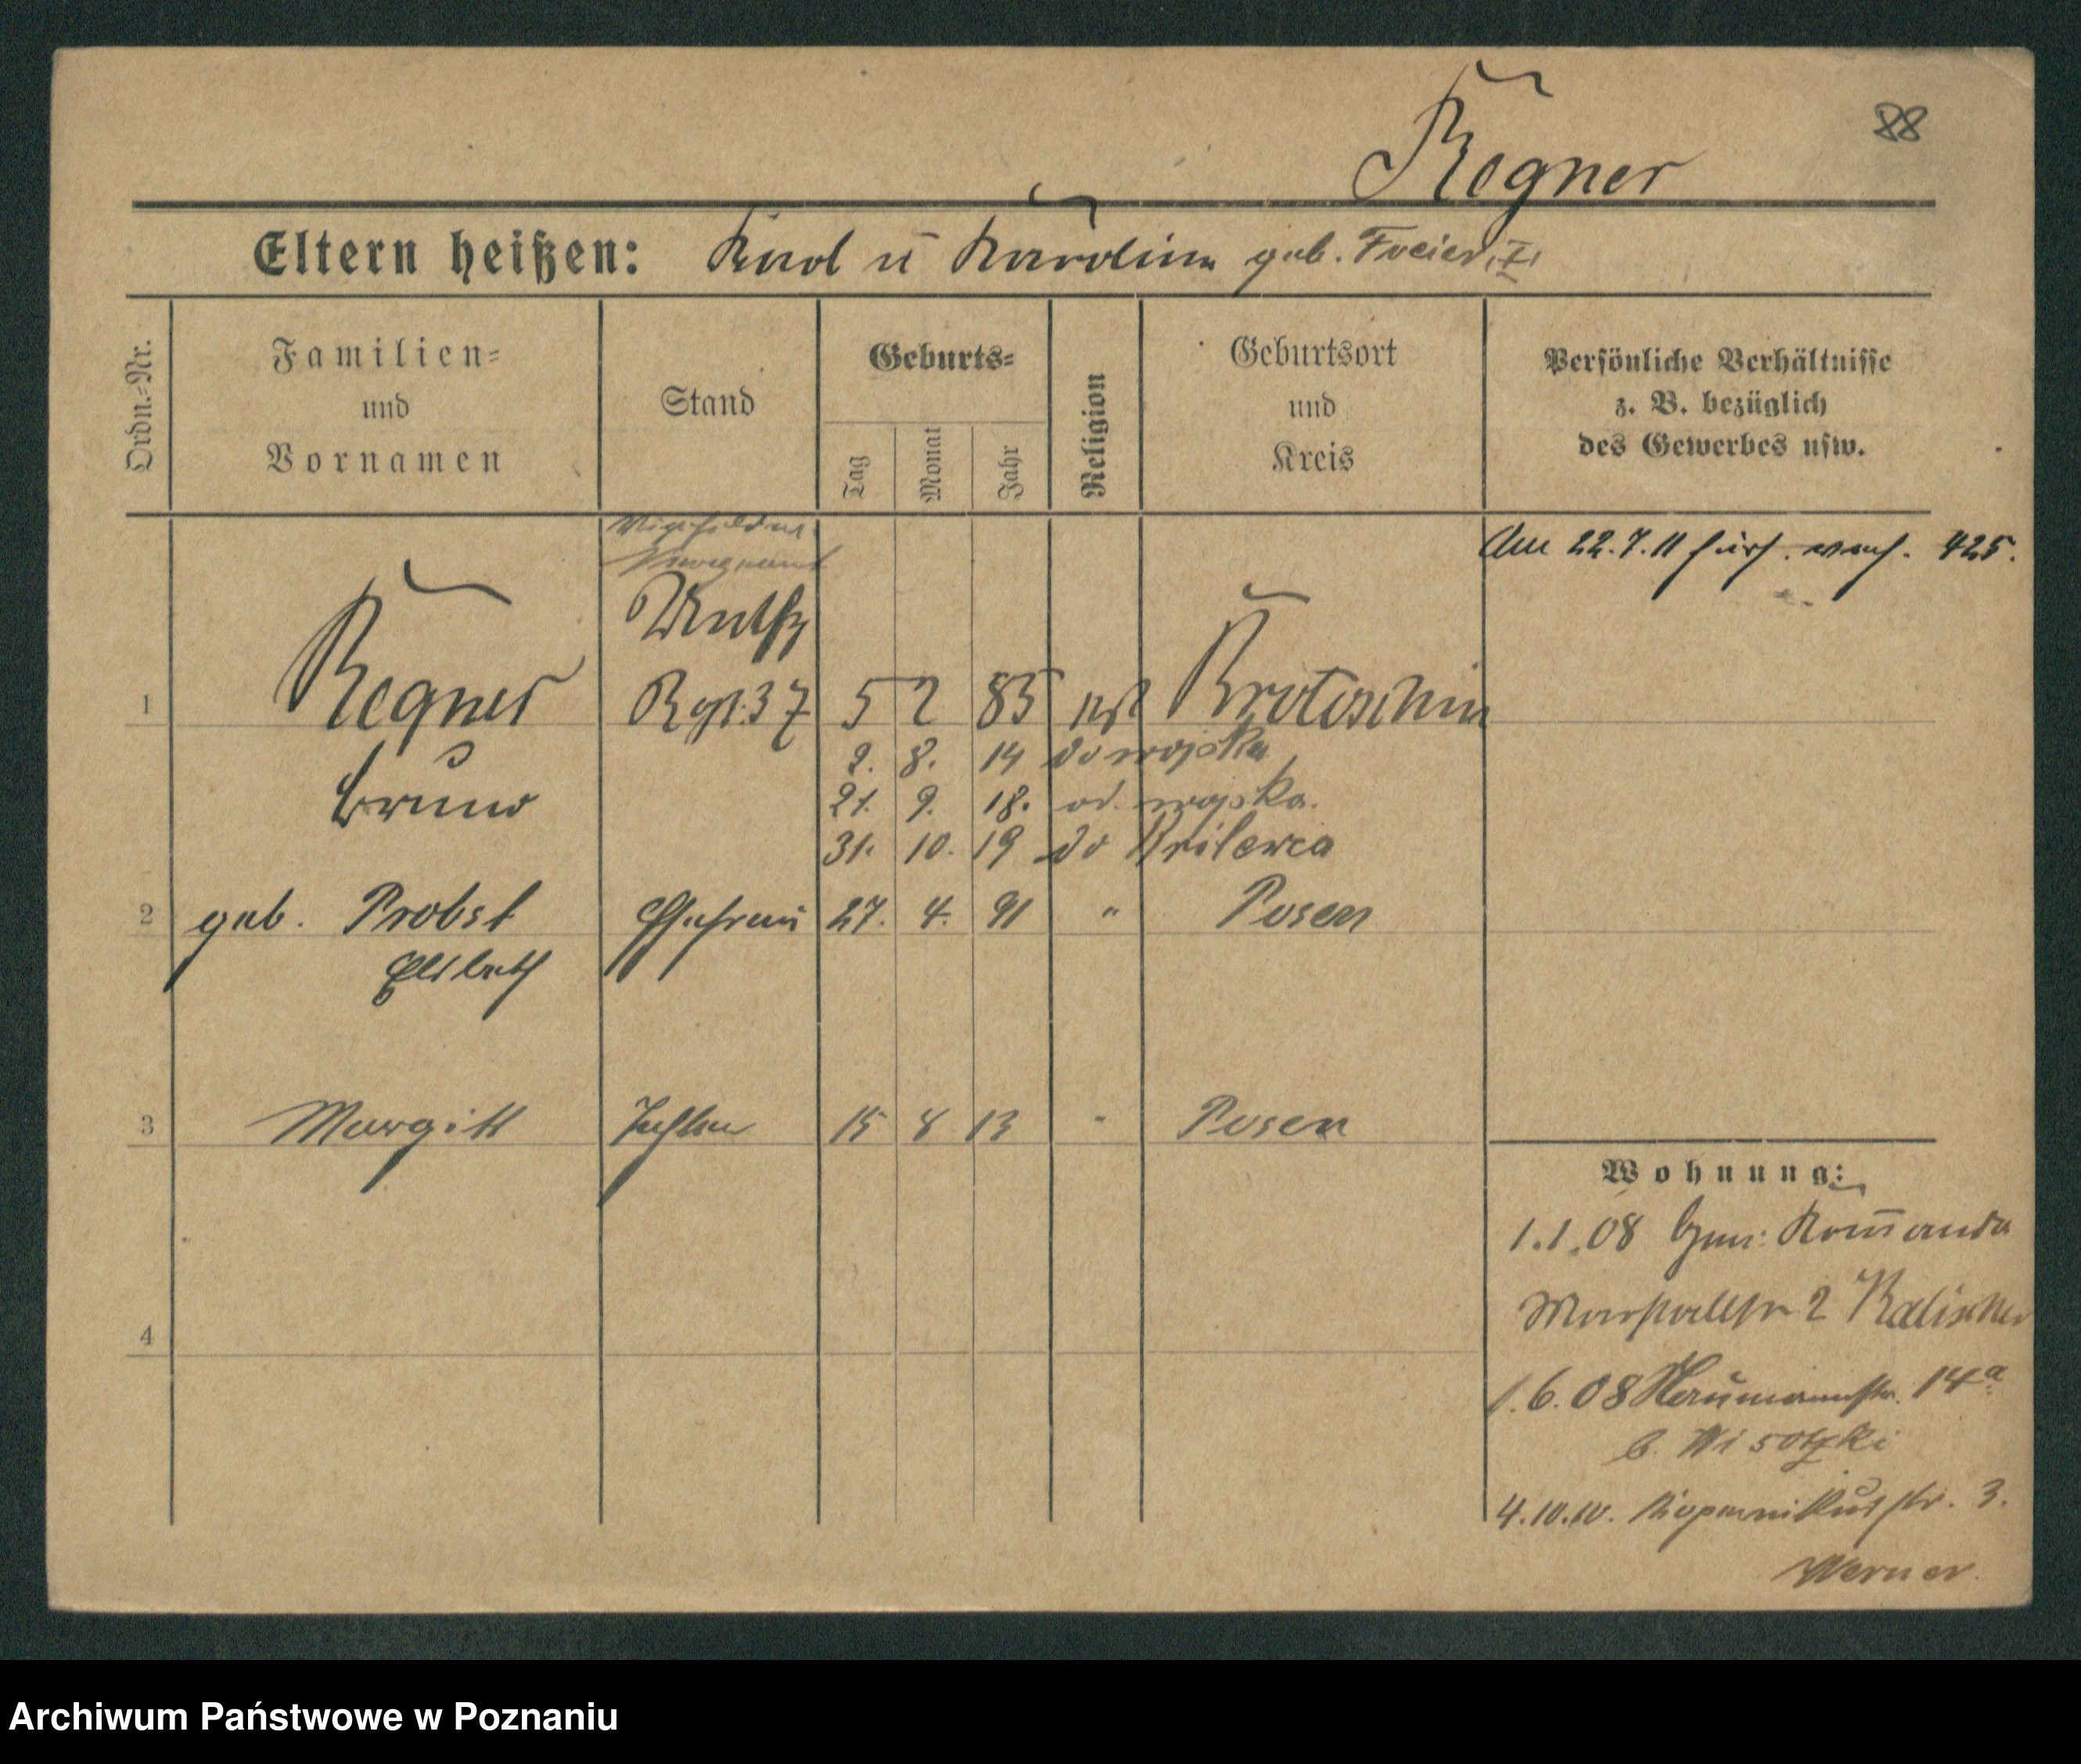 88
Regner
Eltern heißen: Karl u Karoline geb. Freier
Ordn.-Nr.
Familien-
und
Vornamen
Stand
Geburts-
Tag
Monat
Jahr
Religion
Geburtsort
und
Kreis
Persönliche Verhältnisse
z. B. bezüglich
des Gewerbes usw.
Vizefeldw.
Am 22.7.11 hier 425.
1 Regner Rgt. 37 5 2 85 Krotoschin
2. 8. 14 do wojska
Bruno 21. 9. 18. od. wojska.
31. 10. 19 do
2 geb. Probst Ehefrau 27. 4. 91 " Posen
Elsbeth
3 Margitt Tochter 15 8 13 " Posen
Wohnung:
1.1.08 Gen: Komanda
4
Marstallstr 2 Kalischer
1.6.08 Naumannstr. 14a
b. Wisotzki
4.10.10. Kopernikusstr. 3.
Werner.
Archiwum Państwowe w Poznaniu